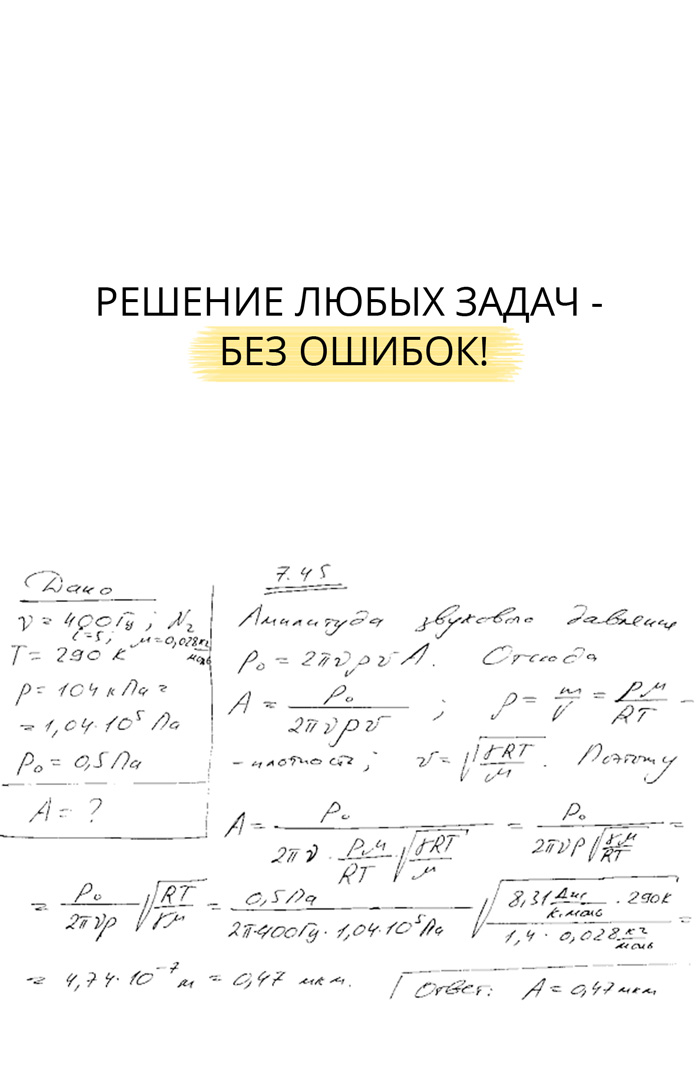 РЕШЕНИЕ ЛЮБЫХ ЗАДАЧ -
БЕЗ ОШИБОК!
7.45
Дано
ν = 400 Гц ; N₂
i=5; M=0,028 кг/моль
T = 290 К
p = 104 кПа =
= 1,04·10⁵ Па
P₀ = 0,5 Па
A = ?
Амплитуда звукового давления
P₀ = 2πνρυA. Отсюда
A = P₀/2πνρυ ; ρ = m/V = PM/RT -
- плотность; υ = √γRT/M . Поэтому
A = P₀/2πν · PM/RT √γRT/M = P₀/2πνP√γM/RT =
= P₀/2πνp √RT/γM = 0,5 Па/2π·400Гц·1,04·10⁵Па √8,31 Дж/К·моль · 290К/1,4 · 0,028 кг/моль =
= 4,74·10⁻⁷ м = 0,47 мкм.
Ответ: A = 0,47 мкм